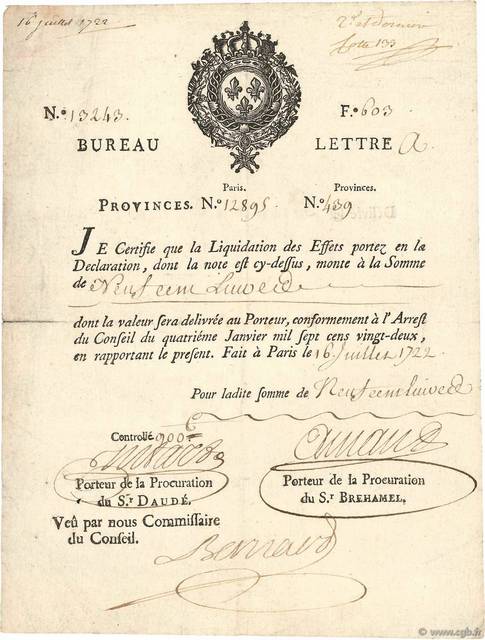 16 juillet 1722
2e. et dernier
Cotte 133
N.o 13243. F.o 603
BUREAU LETTRE A
Paris. Provinces.
PROVINCES. N.o 12895 N.o 439
JE Certifie que la Liquidation des Effets portez en la
Declaration, dont la note est cy-dessus, monte à la Somme
de Neuf cem Liures
dont la valeur sera delivrée au Porteur, conformement à l'Arrest
du Conseil du quatriéme Janvier mil sept cens vingt-deux,
en rapportant le present. Fait à Paris le 16 Juillet 1722.
Pour ladite somme de Neuf cem liures
Controllé 900
Porteur de la Procuration
du S.r DAUDÉ.
Porteur de la Procuration
du S.r BREHAMEL.
Veû par nous Commissaire
du Conseil.
© www.cgb.fr